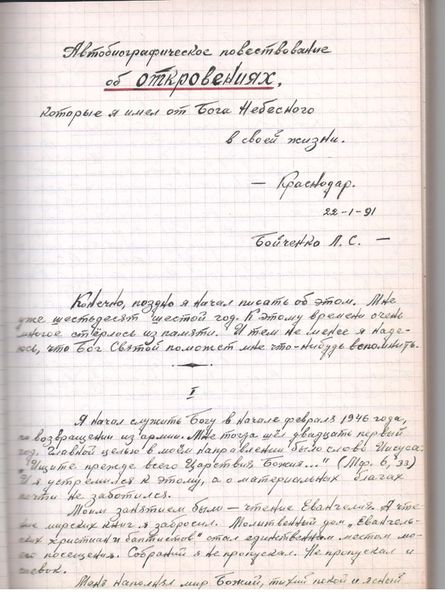 Автобиографическое повествование
об откровениях,
которые я имел от Бога Небесного
в своей жизни.
— Краснодар.
22-1-91
Бойченко Л. С. —
Конечно, поздно я начал писать об этом. Мне
уже шестьдесят шестой год. К этому времени очень
многое стёрлось из памяти. И тем не менее я наде-
юсь, что Бог Святой поможет мне что-нибудь вспомнить.
I
Я начал служить Богу в начале февраля 1946 года,
по возвращении из армии. Мне тогда шёл двадцать первый
год. Главной целью в моём направлении было слово Иисуса:
"Ищите прежде всего Царствия Божия..." (Мф. 6, 33)
И я устремился к этому, а о материальных благах
почти не заботился.
Моим занятием было — чтение Евангелия. А чте-
ние мирских книг я забросил. Молитвенный дом "Евангель-
ских христиан и баптистов" стал единственным местом мо-
его посещения. Собраний я не пропускал. Не пропускал и
спевок.
Меня наполнял мир Божий, тихий покой и ясный